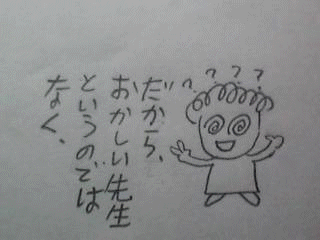 ? ? ? ?
だから、
おかしい先生
というのでは
なく、